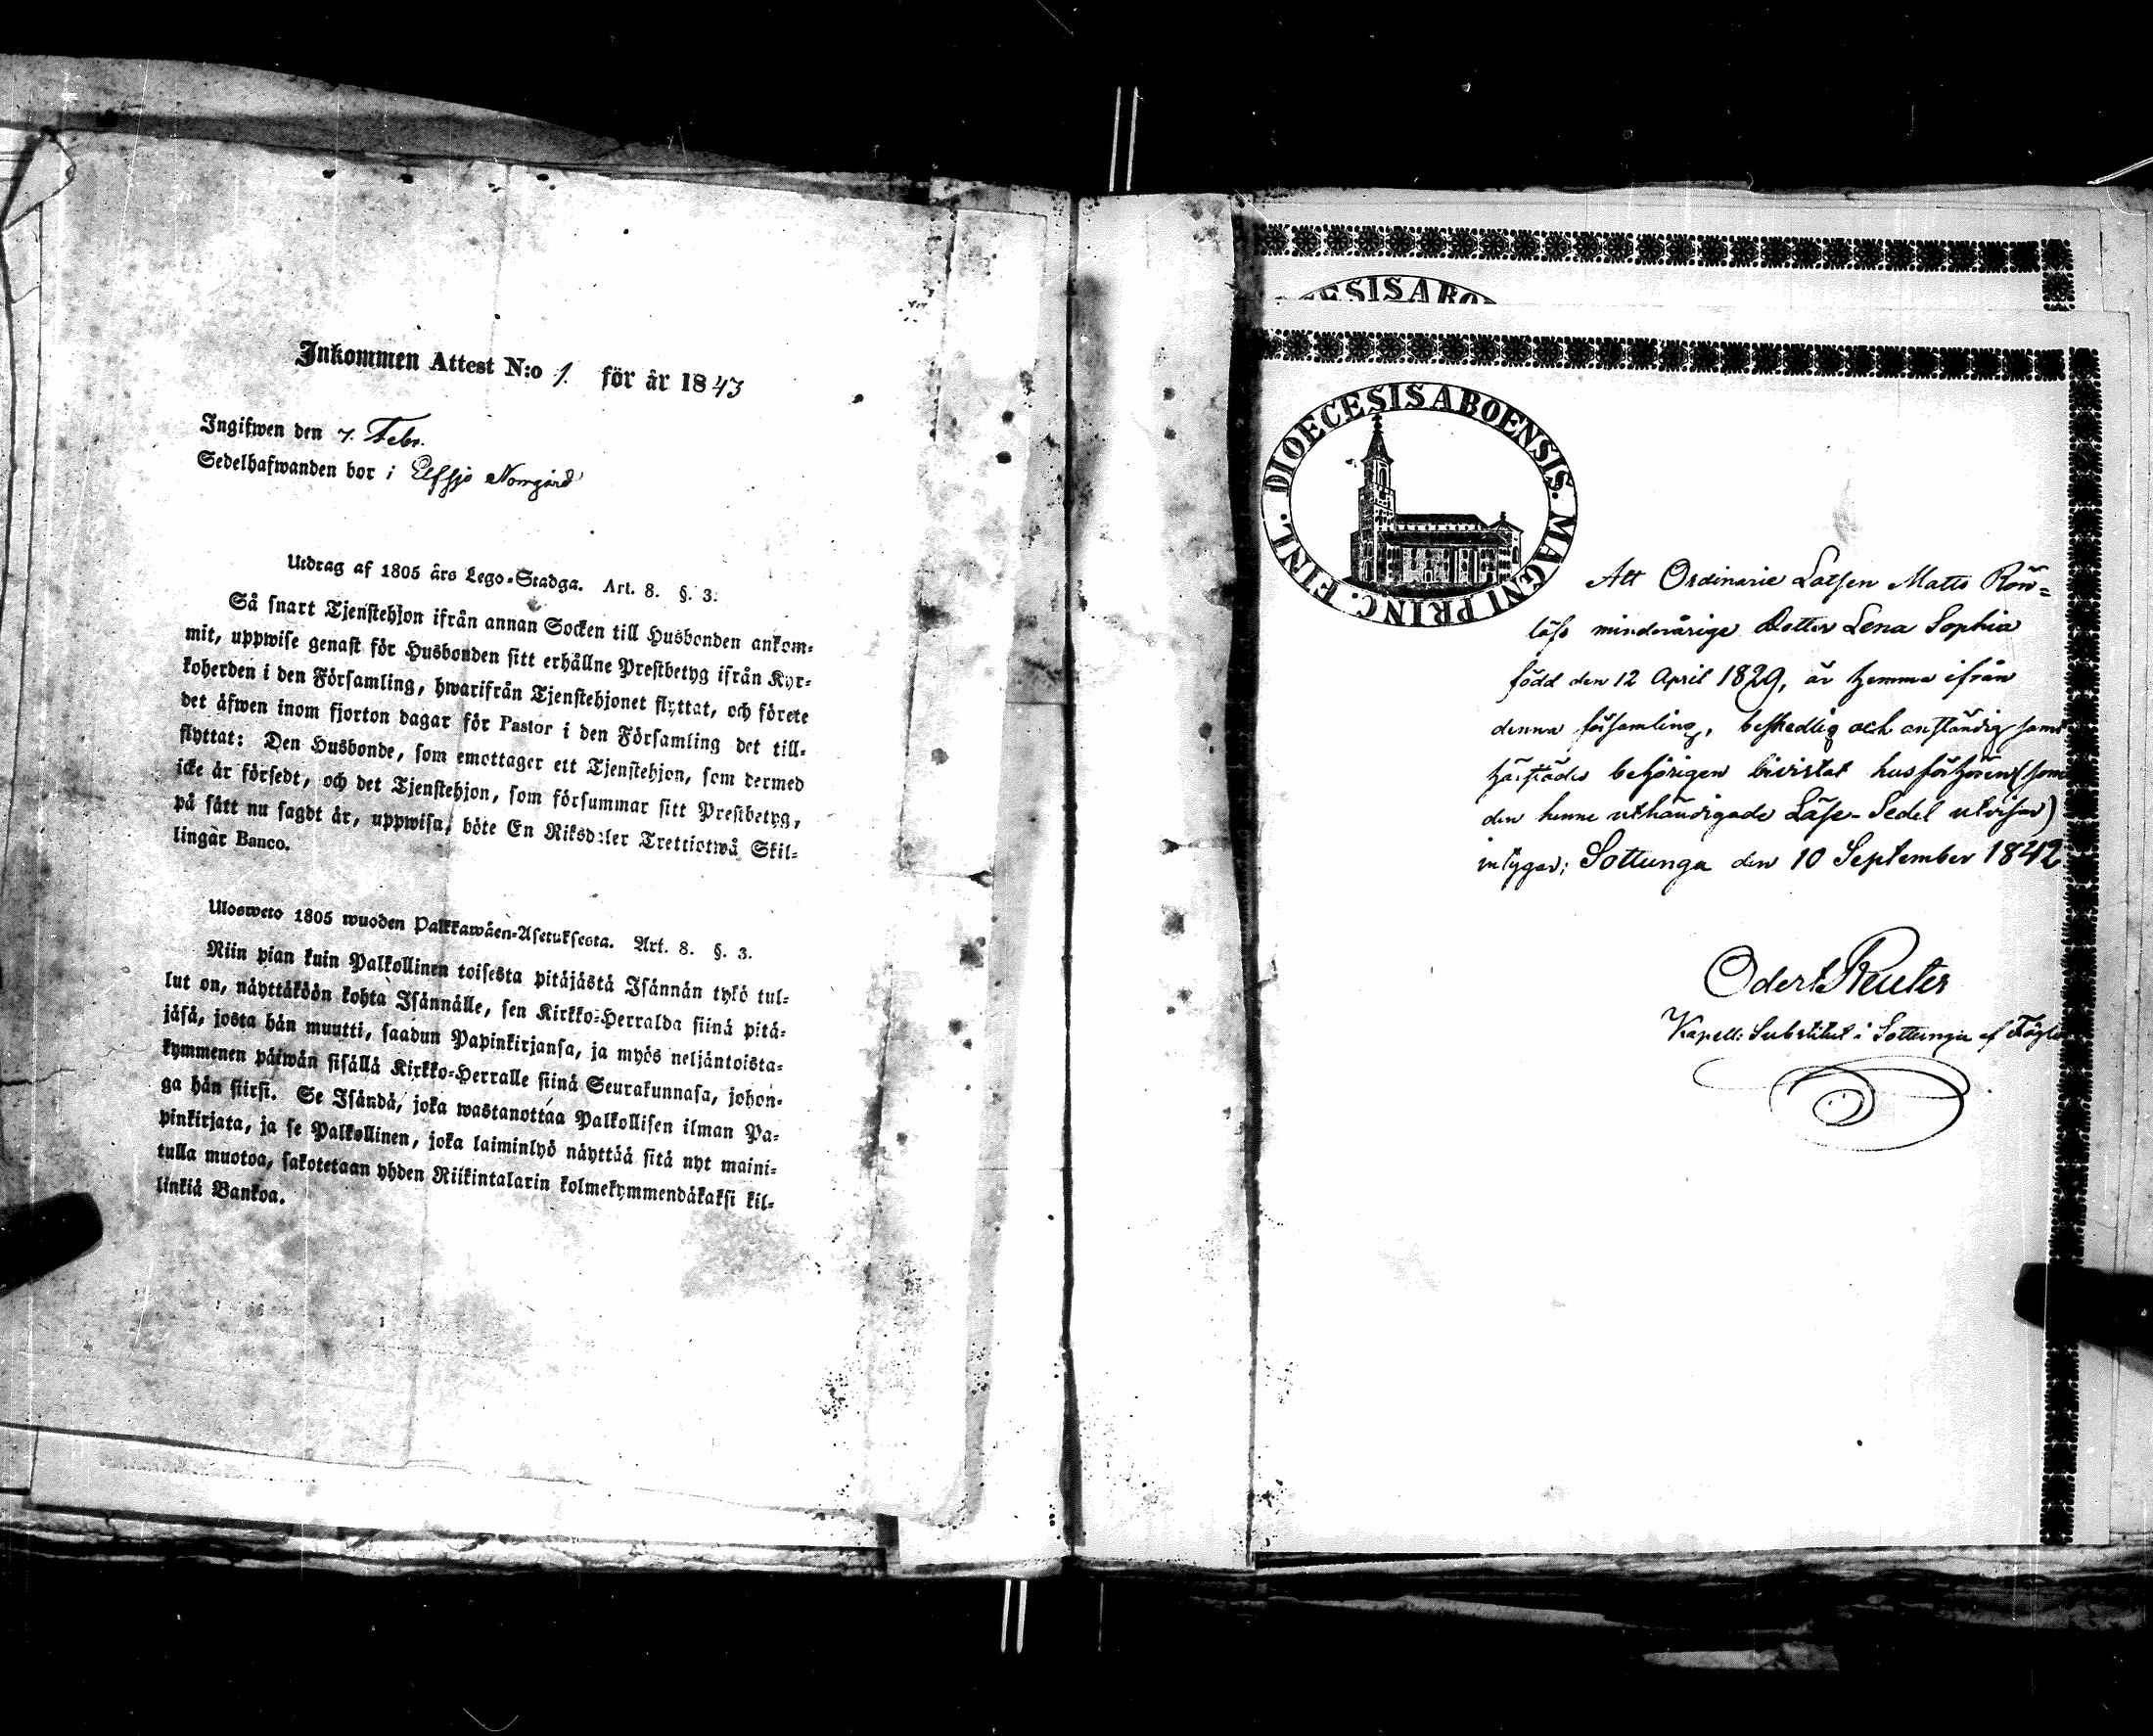 Inkommen Attest N:o 1. för år 1843
Ingifwen den 7. Febr.
Sedelhafwanden bor i Elfsjö Norrgård
Utdrag af 1805 års Lego-Stadga. Art. 8. §. 3.
Så snart Tjenstehjon ifrån annan Socken till Husbonden ankom-
mit, uppwise genast för Husbonden sitt erhållne Prestbetyg ifrån Kyr-
koherden i den Församling, hwarifrån Tjenstehjonet flyttat, och förete
det äfwen inom fjorton dagar för Pastor i den Församling det till-
flyttat: Den Husbonde, som emottager ett Tjenstehjon, som dermed
icke är försedt, och det Tjenstehjon, som försummar sitt Prestbetyg,
på sätt nu sagdt är, uppwisa, böte En Riksdaler Trettiotwå Skil-
lingar Banco.
Ulosweto 1805 wuoden Palkkawäen-Asetuksesta. Art. 8. §. 3.
Niin pian kuin Palkollinen toisesta pitäjästä Isännän tykö tul-
lut on, näyttäköön kohta Isännälle, sen Kirkko-Herralda siinä pitä-
jäsä, josta hän muutti, saadun Papinkirjansa, ja myös neljäntoista-
kymmenen päiwän sisällä Kirkko-Herralle siinä Seurakunnasa, johon-
ga hän siirsi. Se Isändä, joka wastanottaa Palkollisen ilman Pa-
pinkirjata, ja se Palkollinen, joka laiminlyö näyttää sitä nyt maini-
tulla muotoa, sakotetaan yhden Riikintalarin kolmekymmendäkaksi kil-
linkiä Bankoa.
ESIS ABO
DIOECESIS ABOENSIS. MAGNI PRINC. FINL.
Att Ordinarie Lotsen Matts Rön=
läfs minderårige Dotter Lena Sophia
född den 12 April 1829, är hemma ifrån
denna församling, beskedlig och anständig samt
härstädes behörigen bivistat husförhören (som
den henne uthändigade Läse-Sedel utvisar)
intygar; Sottunga den 10 September 1842
Odert Reuter
Kapell: Substitut i Sottunga af Föglö